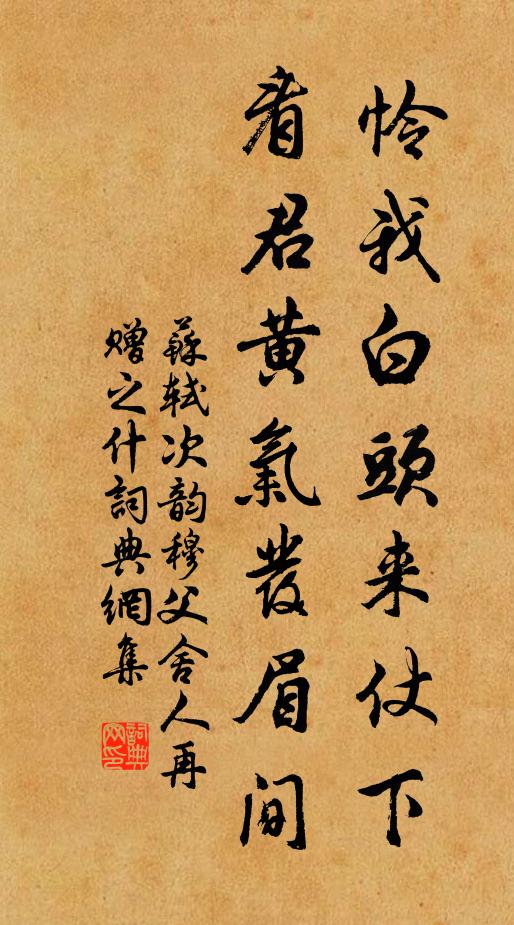 怜我白頭来仗下
看君黄氣發眉间
蘇軾次韵穆父舍人再
贈之什詞典網集
詞典網印